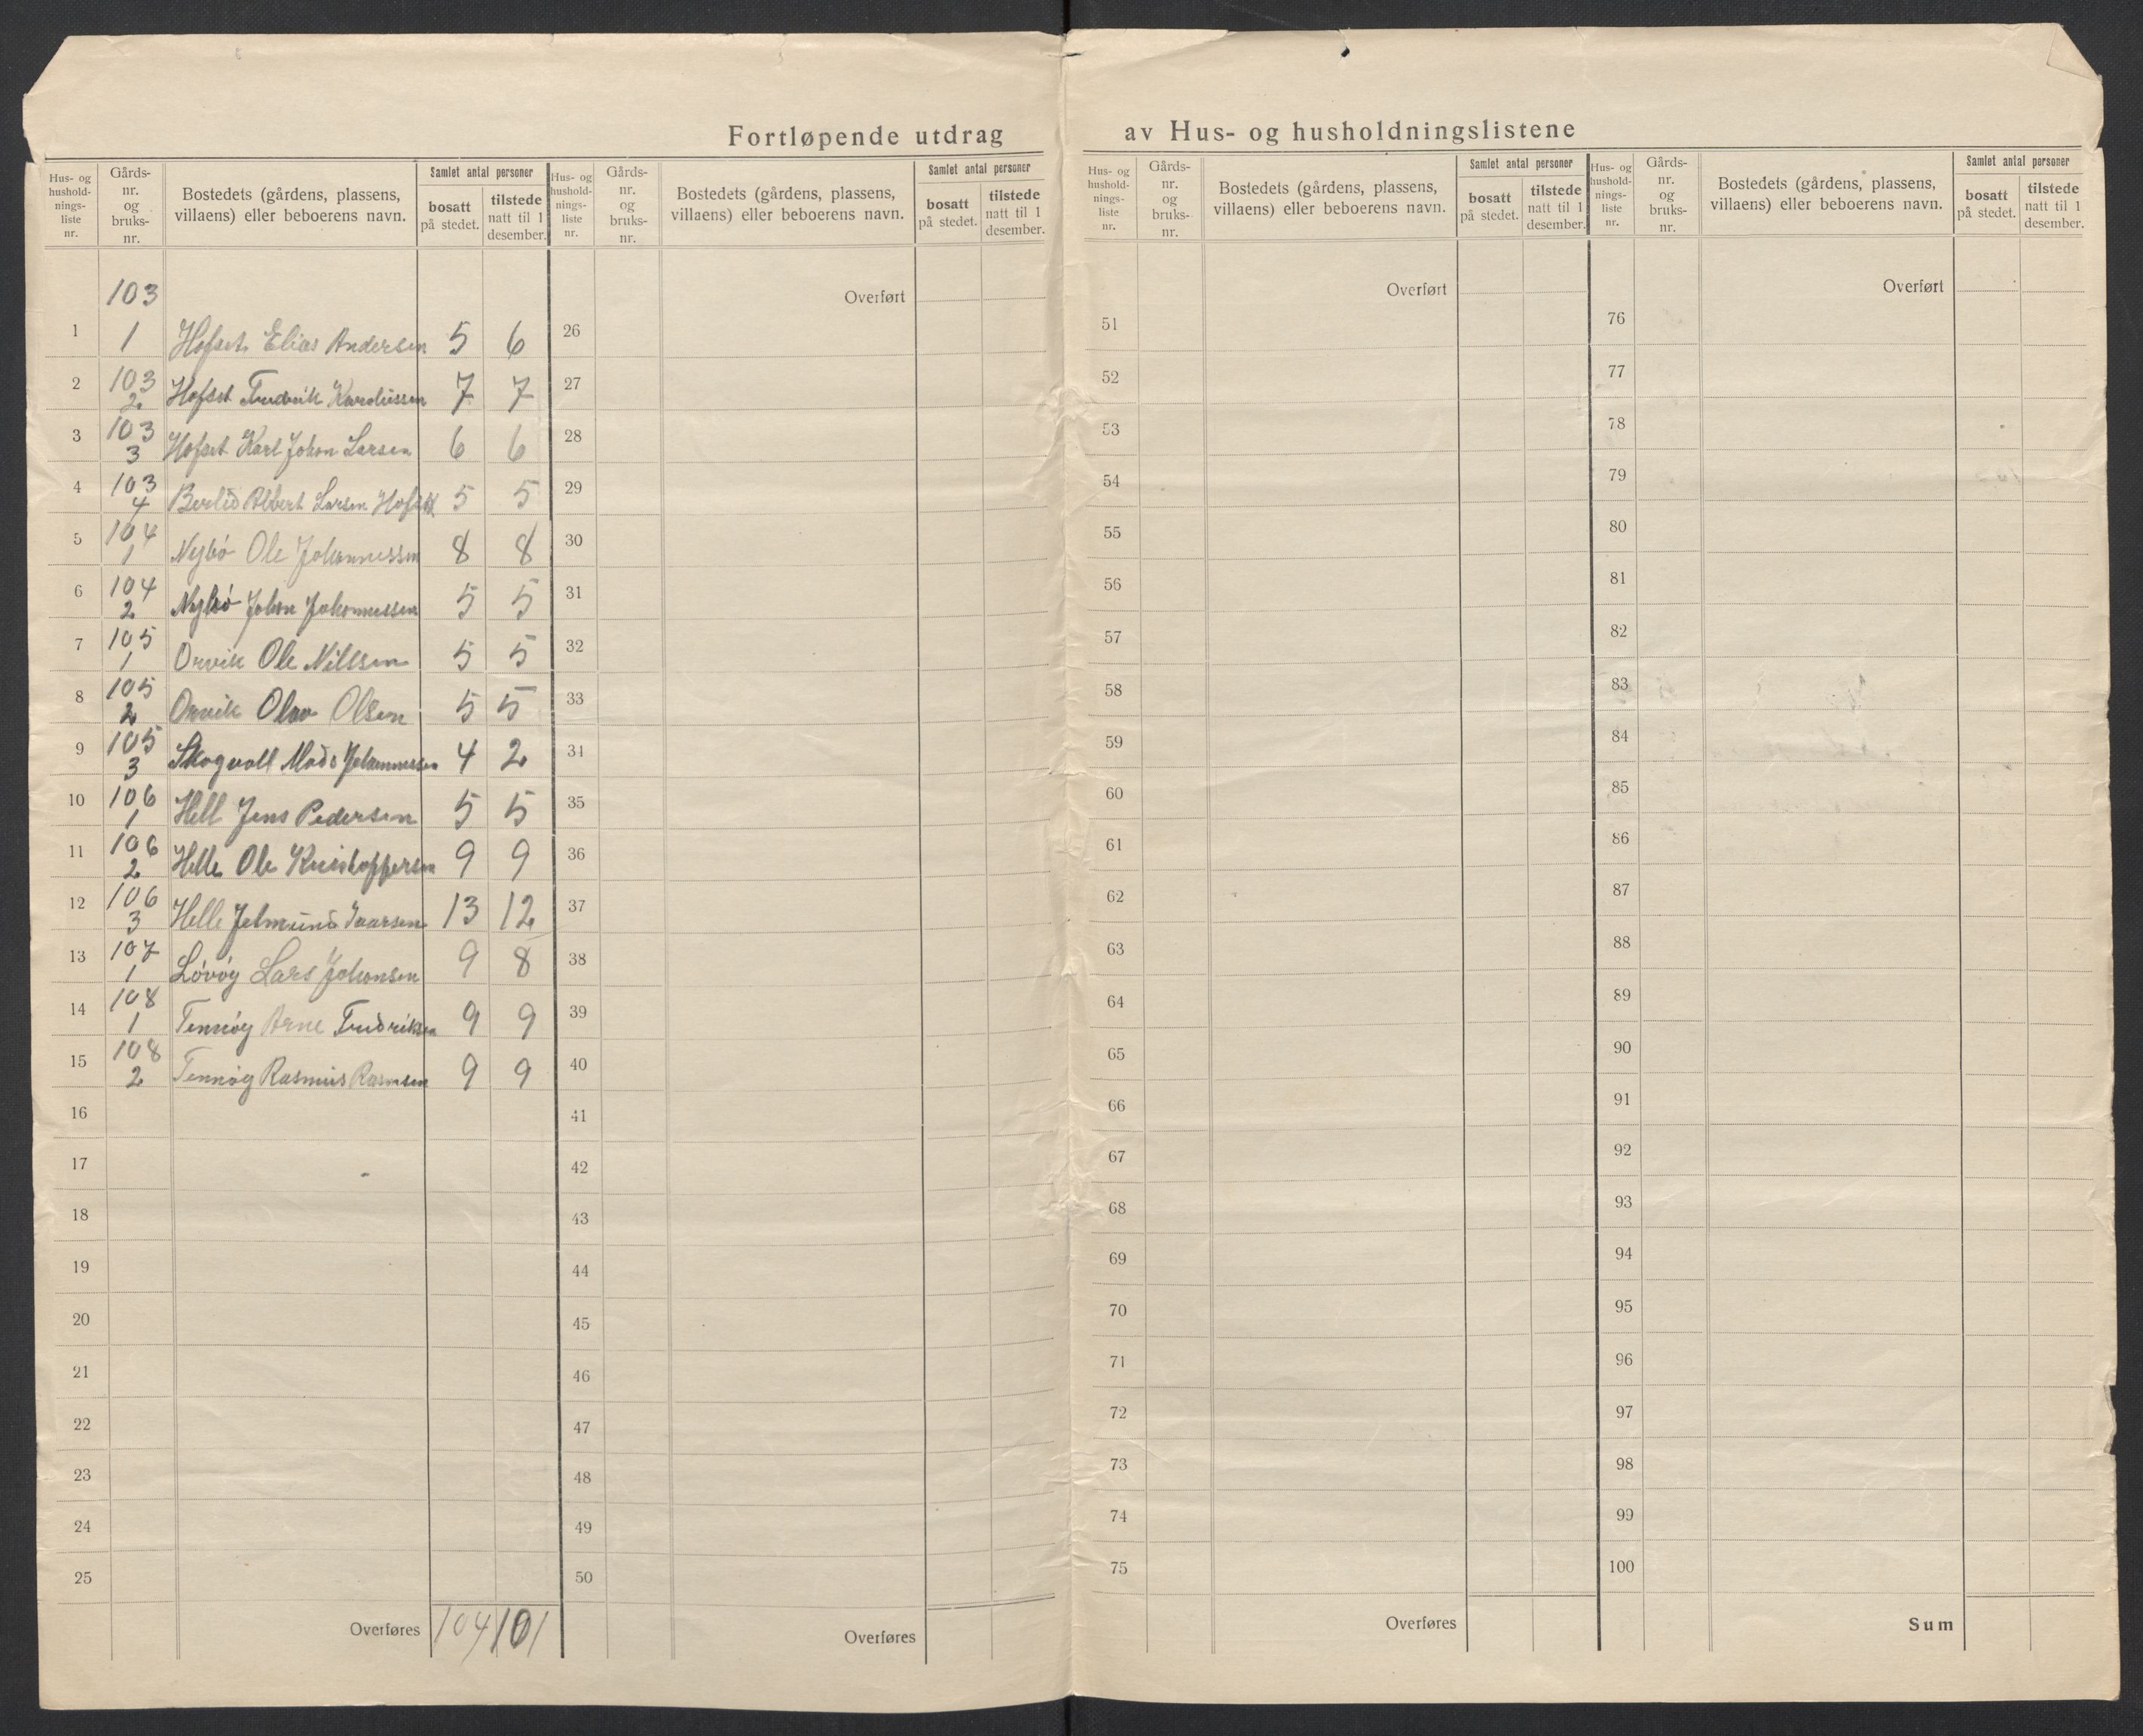 Fortløpende utdrag av Hus- og husholdningslistene
Hus- og hushold-nings-liste nr.
Gårds-nr. og bruks-nr.
Bostedets (gårdens, plassens, villaens) eller beboerens navn.
Samlet antal personer
bosatt på stedet.
tilstede natt til 1 desember.
103
1 1 Hofset Elias Andersen 5 6
2 103 2 Hofset Fredrik Karolussen 7 7
3 103 3 Hofset Karl Johan Larsen 6 6
4 103 4 Albert Larsen Hofset 5 5
5 104 1 Nybø Ole Johannessen 8 8
6 104 2 Nybø Johan Johannessen 5 5
7 105 1 Orvik Ole Nilssen 5 5
8 105 2 Orvik Olav Olsen 5 5
9 105 3 Skogvoll Mads Johannessen 4 2
10 106 1 Hell Jens Pedersen 5 5
11 106 2 Helle Ole Kristoffersen 9 9
12 106 3 Helle Ivarsen 13 12
13 107 1 Løvøy Lars Johansen 9 8
14 108 1 Tennøy Arne Fredriksen 9 9
15 108 2 Tennøy Rasmus Rasmusen 9 9
16
17
18
19
20
21
22
23
24
25
Overføres 104 101
Hus- og hushold-nings-liste nr.
Gårds-nr. og bruks-nr.
Bostedets (gårdens, plassens, villaens) eller beboerens navn.
Samlet antal personer
bosatt på stedet.
tilstede natt til 1 desember.
Overført
26
27
28
29
30
31
32
33
34
35
36
37
38
39
40
41
42
43
44
45
46
47
48
49
50
Overføres
Hus- og hushold-nings-liste nr.
Gårds-nr. og bruks-nr.
Bostedets (gårdens, plassens, villaens) eller beboerens navn.
Samlet antal personer
bosatt på stedet.
tilstede natt til 1 desember.
Overført
51
52
53
54
55
56
57
58
59
60
61
62
63
64
65
66
67
68
69
70
71
72
73
74
75
Overføres
Hus- og hushold-nings-liste nr.
Gårds-nr. og bruks-nr.
Bostedets (gårdens, plassens, villaens) eller beboerens navn.
Samlet antal personer
bosatt på stedet.
tilstede natt til 1 desember.
Overført
76
77
78
79
80
81
82
83
84
85
86
87
88
89
90
91
92
93
94
95
96
97
98
99
100
Sum